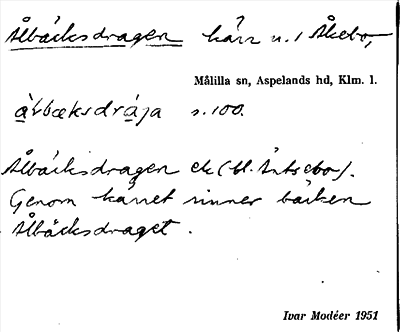 Ålbäcksdragen kärr u. / Åkebo,
Målilla sn, Aspelands hd, Klm. l.
ålbæksdrája s. 100.
Ålbäcksdragen ek (bl. Äntsebo).
Genom kärret rinner bäcken
Ålbäcksdraget.
Ivar Modéer 1951